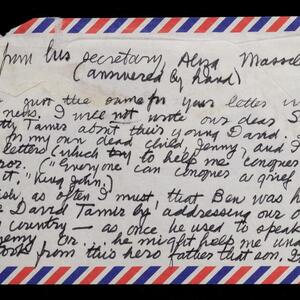 from his secretary, Aliza
(answered by hand)
just the same for your letter
news. I will not write our dear
Tamir about their young David.
letters own dead child, Jenny, and I
which try to help me conquer
("Everyone can conquer a grief
it." King John.)
as often I must, that Ben was
David Tamir by addressing our
country — as once he used to speak
Or... he might help me
from this hero father that son,